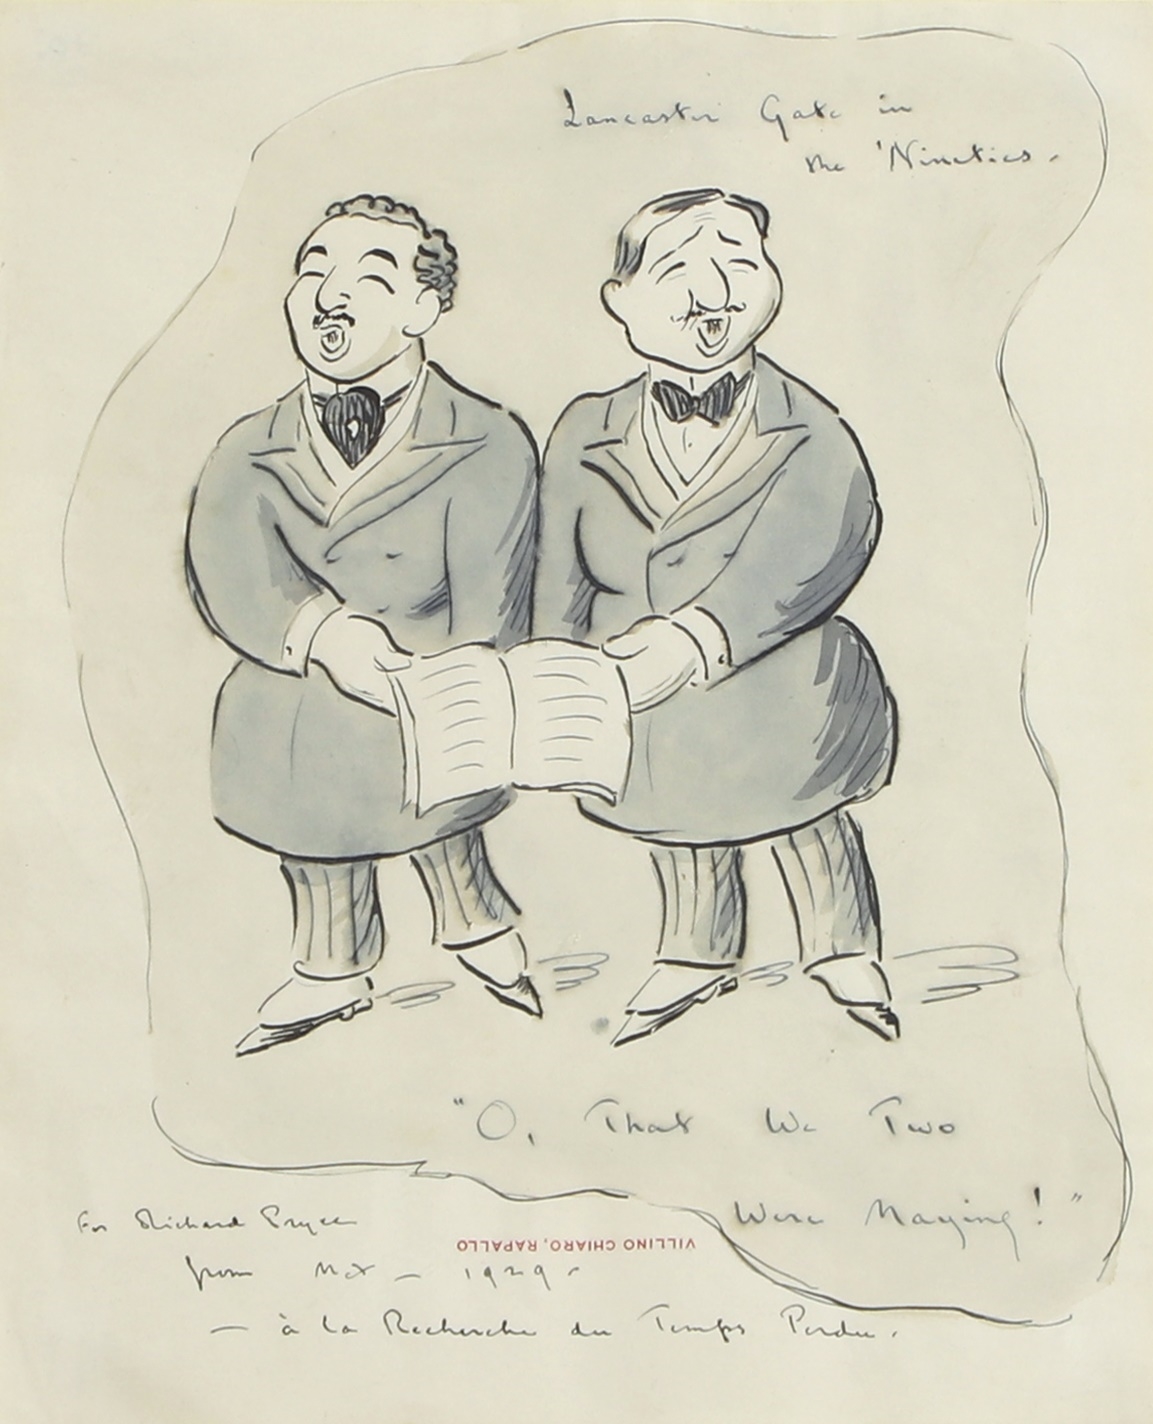 Lancaster Gate in
the 'Nineties.
"O, That We Two
Were Maying!"
For Richard Pryce
VILLINO CHIARO, RAPALLO
from Max — 1929.
— à la Recherche du Temps Perdu.